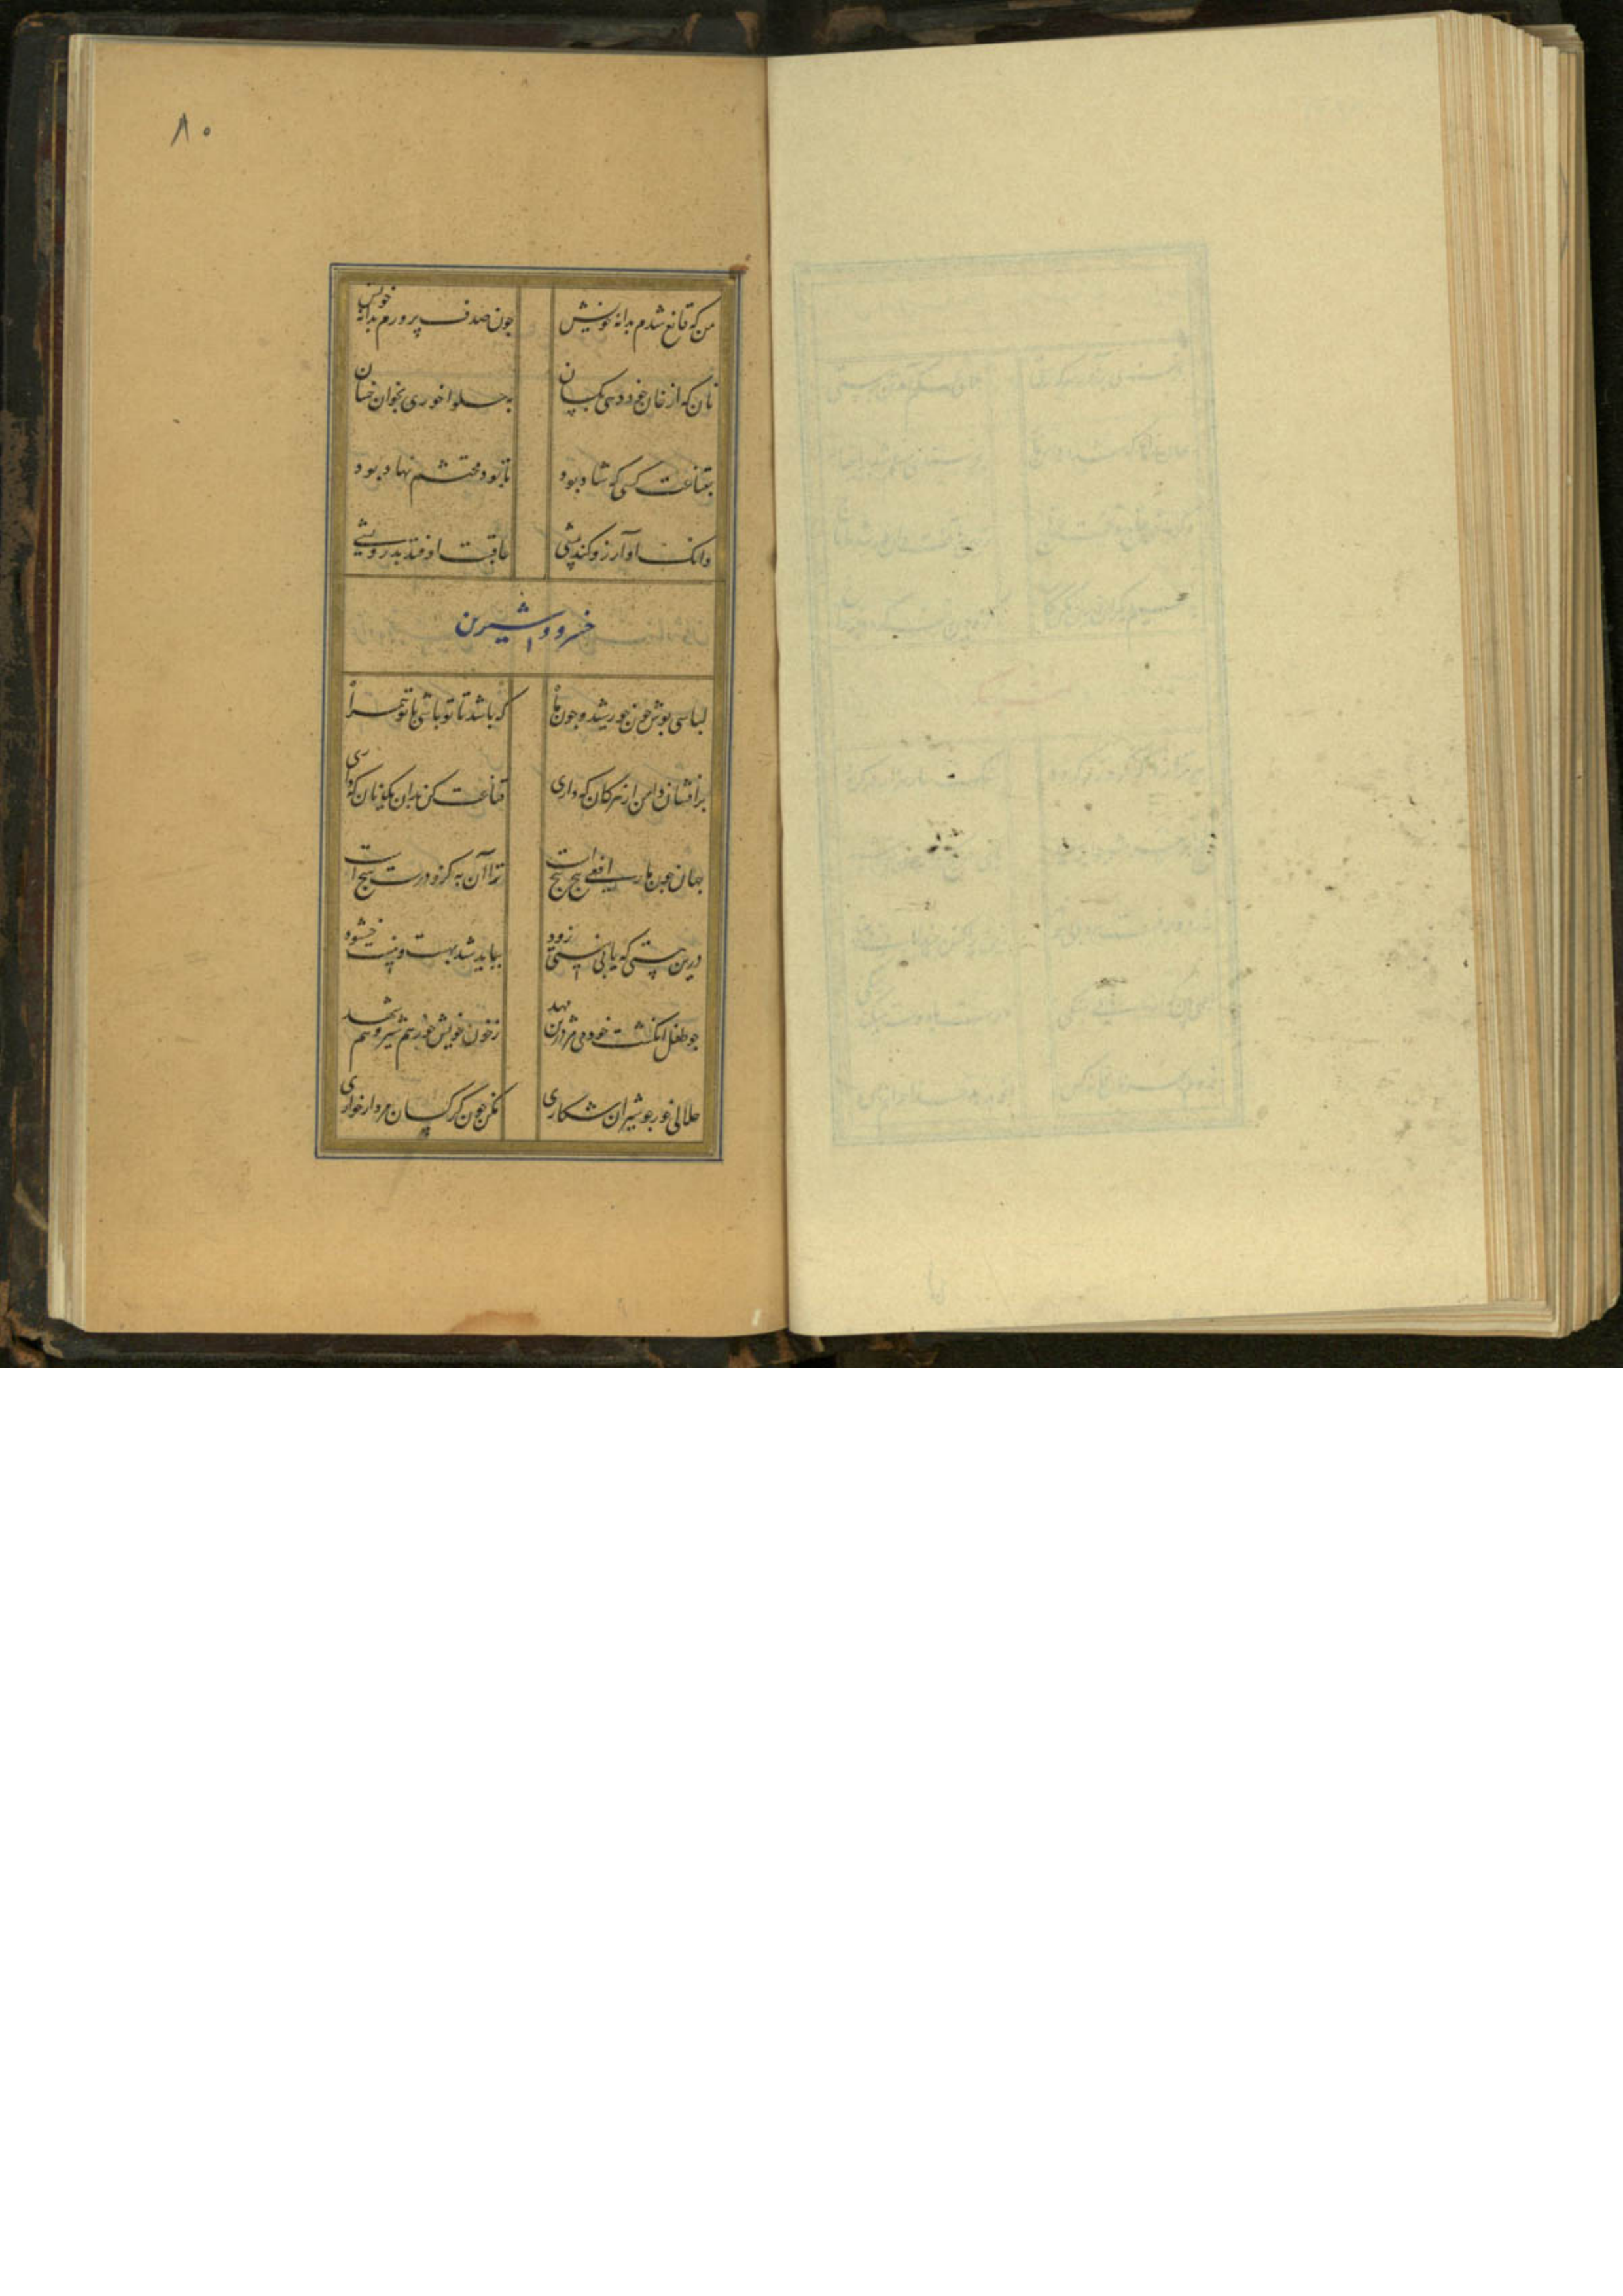 ۸۰
من که قانع شدم بدانه خویش چون صدف پرورم بدانه خویش
نان که از خان خود دهی بکسان به حلوا خوری بخوان خسان
بقناعت کسی که شاد بود تا بود محتشم نهاد بود
وانک او آرزو کند پیشی عاقبت اوفتد بدرویشی
خسرو و شیرین
لباسی پوش چون خورشید و چون ماه که باشد تا تو باشی با تو همراه
برافشان دامن از هر کان که داری قناعت کن بدان یک نان که داری
جهان چون مار افعی پیچ پیچ است ترا آن به کزو در دست هیچ است
درین هستی که یابی نیستی زود بباید شد بهست و نیست خشنود
چو طفل انگشت خود می مز درین مهد ز خون خویش خور هم شیر و هم شهد
حلالی خور چو شیران شکاری مکن چون کرکسان مردار خواری